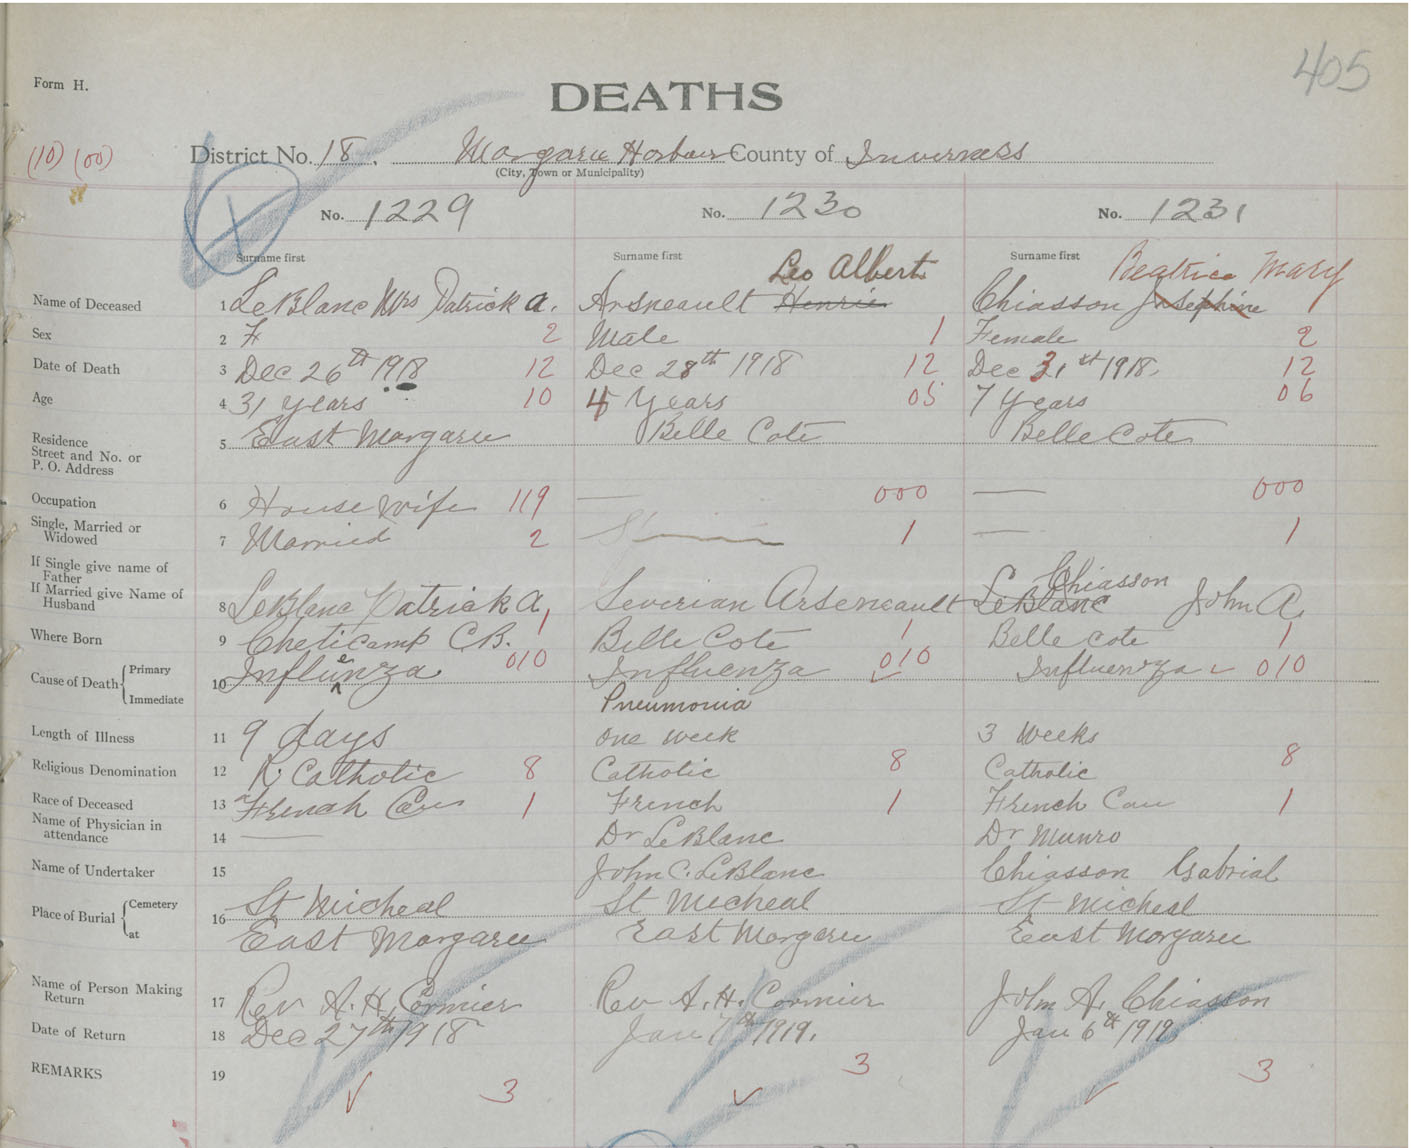 405
Form H.
DEATHS
(10) (00)
District No. 18, Margaree Harbour County of Inverness
(City, Town or Municipality)
No. 1229 No. 1230 No. 1231
Surname first Surname first Leo Albert Surname first Beatrice Mary
Name of Deceased 1 LeBlanc Mrs Patrick A. Arsneault Henrie Chiasson Josephine
Sex 2 F 2 Male 1 Female 2
Date of Death 3 Dec 26th 1918 12 Dec 28th 1918 12 Dec 31st 1918. 12
Age 4 31 years 10 4 Years 05 7 Years 06
Residence
Street and No. or
P. O. Address 5 East Margaree Belle Cote Belle Cote
Occupation 6 House wife 119 — 000 — 000
Single, Married or
Widowed 7 Married 2 1 — 1
If Single give name of
Father
If Married give Name of
Husband 8 LeBlanc Patrick A, Severian Arseneault LeBlanc Chiasson John A.
Where Born 9 Cheticamp C.B. 1 Belle Cote 1 Belle Cote 1
Cause of Death Primary Influenza 010 Influenza 010 Influenza 010
Immediate 10 Pneumonia
Length of Illness 11 9 days one week 3 Weeks
Religious Denomination 12 R. Catholic 8 Catholic 8 Catholic 8
Race of Deceased 13 French Cau 1 French 1 French Cau 1
Name of Physician in
attendance 14 — Dr LeBlanc Dr Munro
Name of Undertaker 15 John C. LeBlanc Chiasson Gabrial
Place of Burial Cemetery 16 St Micheal St Micheal St Micheal
at East Margaree East Margaree East Margaree
Name of Person Making
Return 17 Rev A. H. Cormier Rev A. H. Cormier John A. Chiasson
Date of Return 18 Dec 27th 1918 Jan 7th 1919. Jan 6th 1919
REMARKS 19 3 3 3